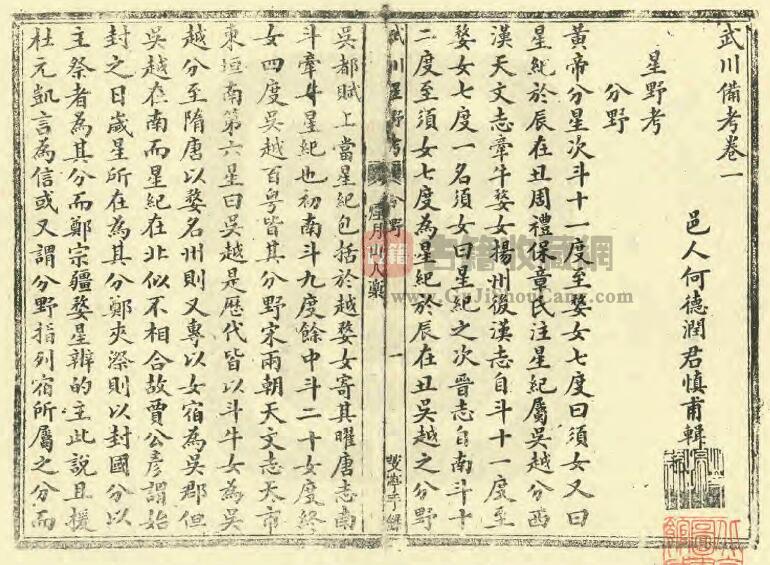 武川備考卷一
邑人何德潤君慎甫輯
星野考
分野
黃帝分星次斗十一度至婺女七度曰須女又曰
星紀於辰在丑周禮保章氏注星紀屬吳越分西
漢天文志牽牛婺女揚州後漢志自斗十一度至
婺女七度一名須女曰星紀之次晉志自南斗十
二度至須女七度為星紀於辰在丑吳越之分野
武川星野考 分野 一
吳都賦上當星紀包括於越婺女寄其曜唐志南
斗牽牛星紀也初南斗九度餘中斗二十女度終
女四度吳越百粵皆其分野宋兩朝天文志天市
東垣南第六星曰吳越是歷代皆以斗牛女為吳
越分至隋唐以婺名州則又專以女宿為吳郡但
吳越在南而星紀在北似不相合故賈公彥謂始
封之日歲星所在為其分鄭夾漈則以封國分以
主祭者為其分而鄭宗疆婺星辨的主此說且援
杜元凱言為信或又謂分野指列宿所屬之分而
古籍收藏網
www.GJShouCang.com